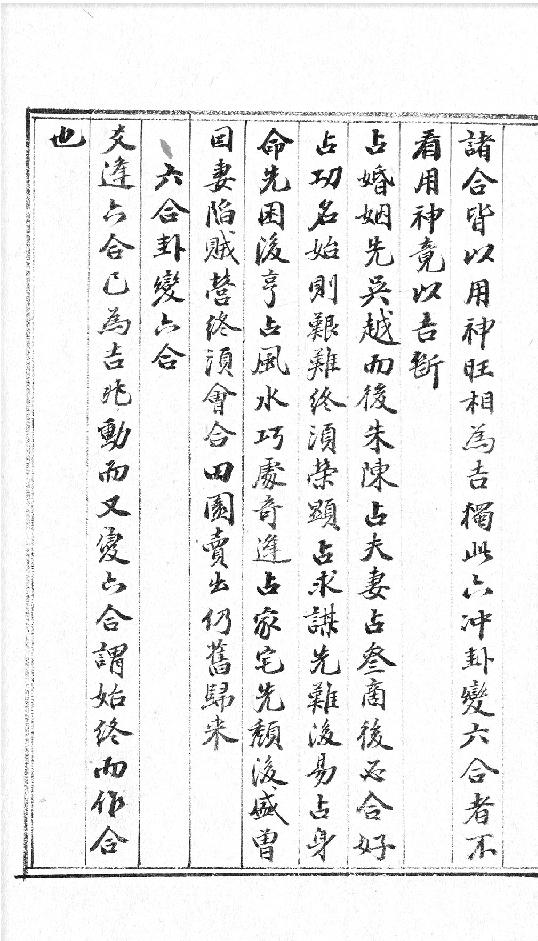 諸合皆以用神旺相為吉獨此六冲卦變六合者不
看用神竟以吉斷
占婚姻先吳越而後朱陳占夫妻占叄商後必合好
占功名始則艱難終須榮顯占求謀先難後易占身
命先困後亨占風水巧處奇逢占家宅先頹後盛曽
因妻陷賊營終須會合田園賣出仍舊歸来
六合卦變六合
爻逢六合已為吉兆動而又變六合謂始終而作合
也